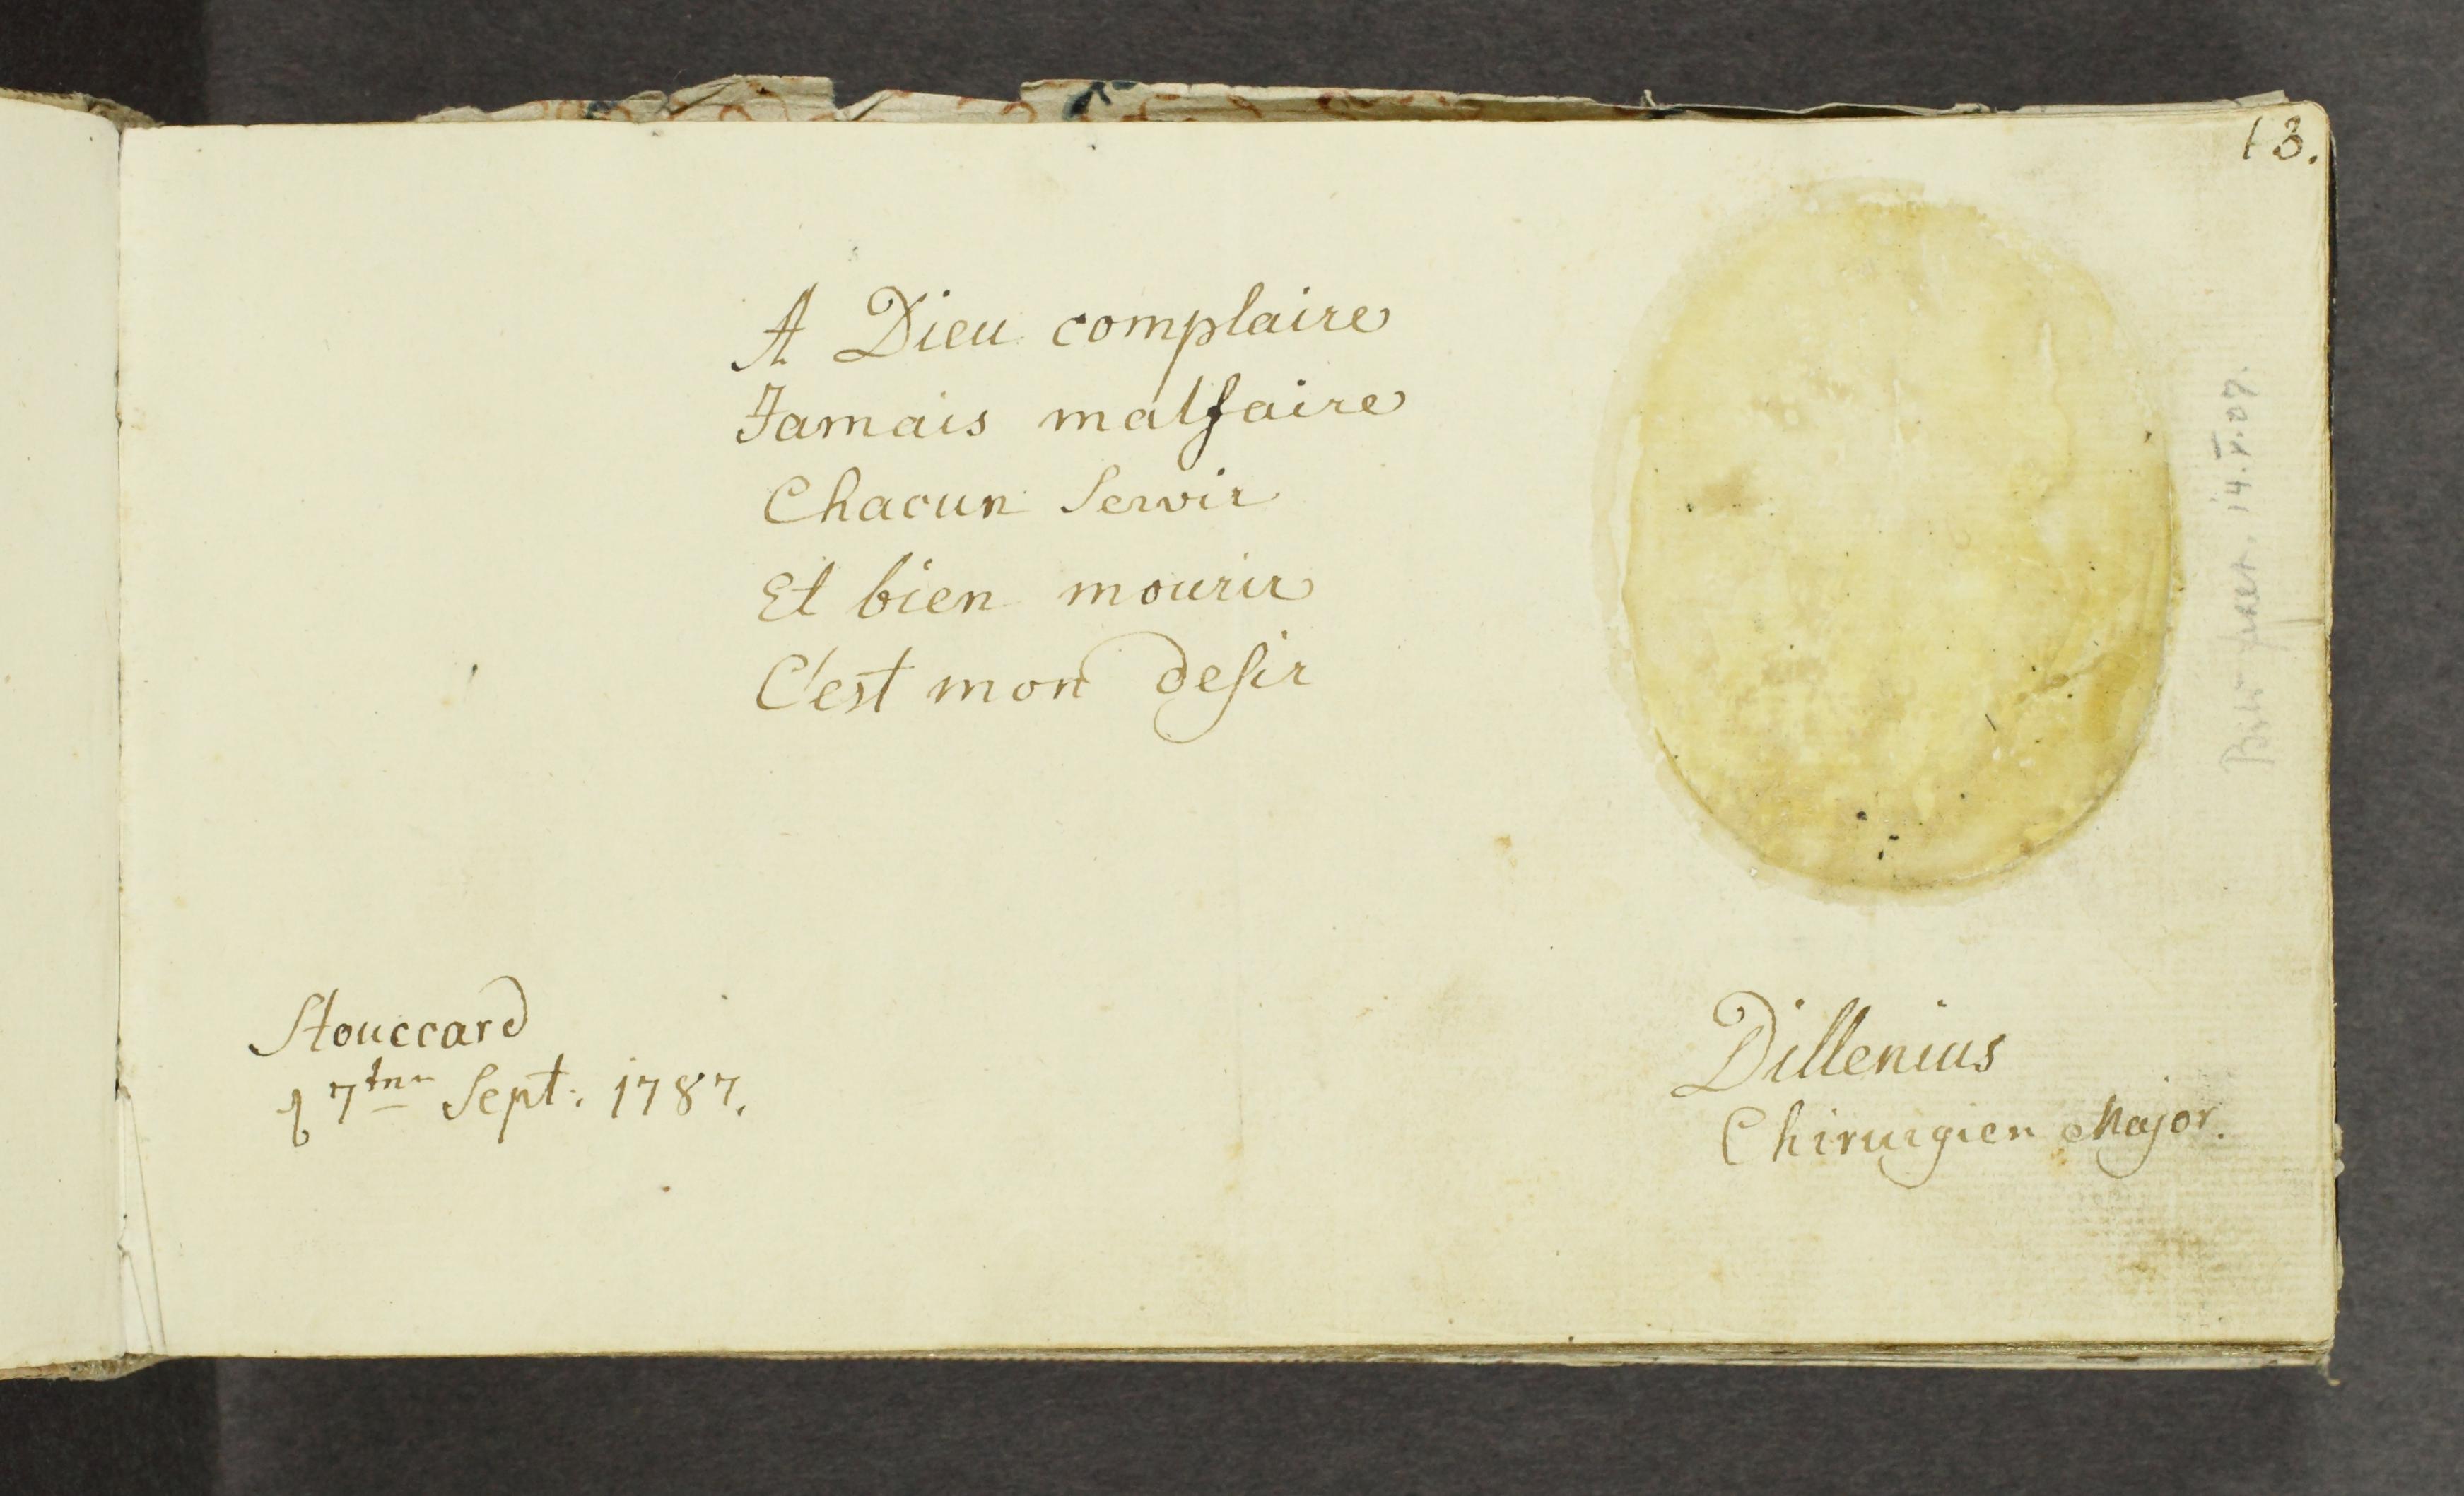 13.
A Dieu complaire
Jamais malfaire
Chacun Servir
Et bien mourir
C'est mon desir
Stouccard
7tn Sept: 1787.
Dillenius
Chirurgien Major.
14.V.07.